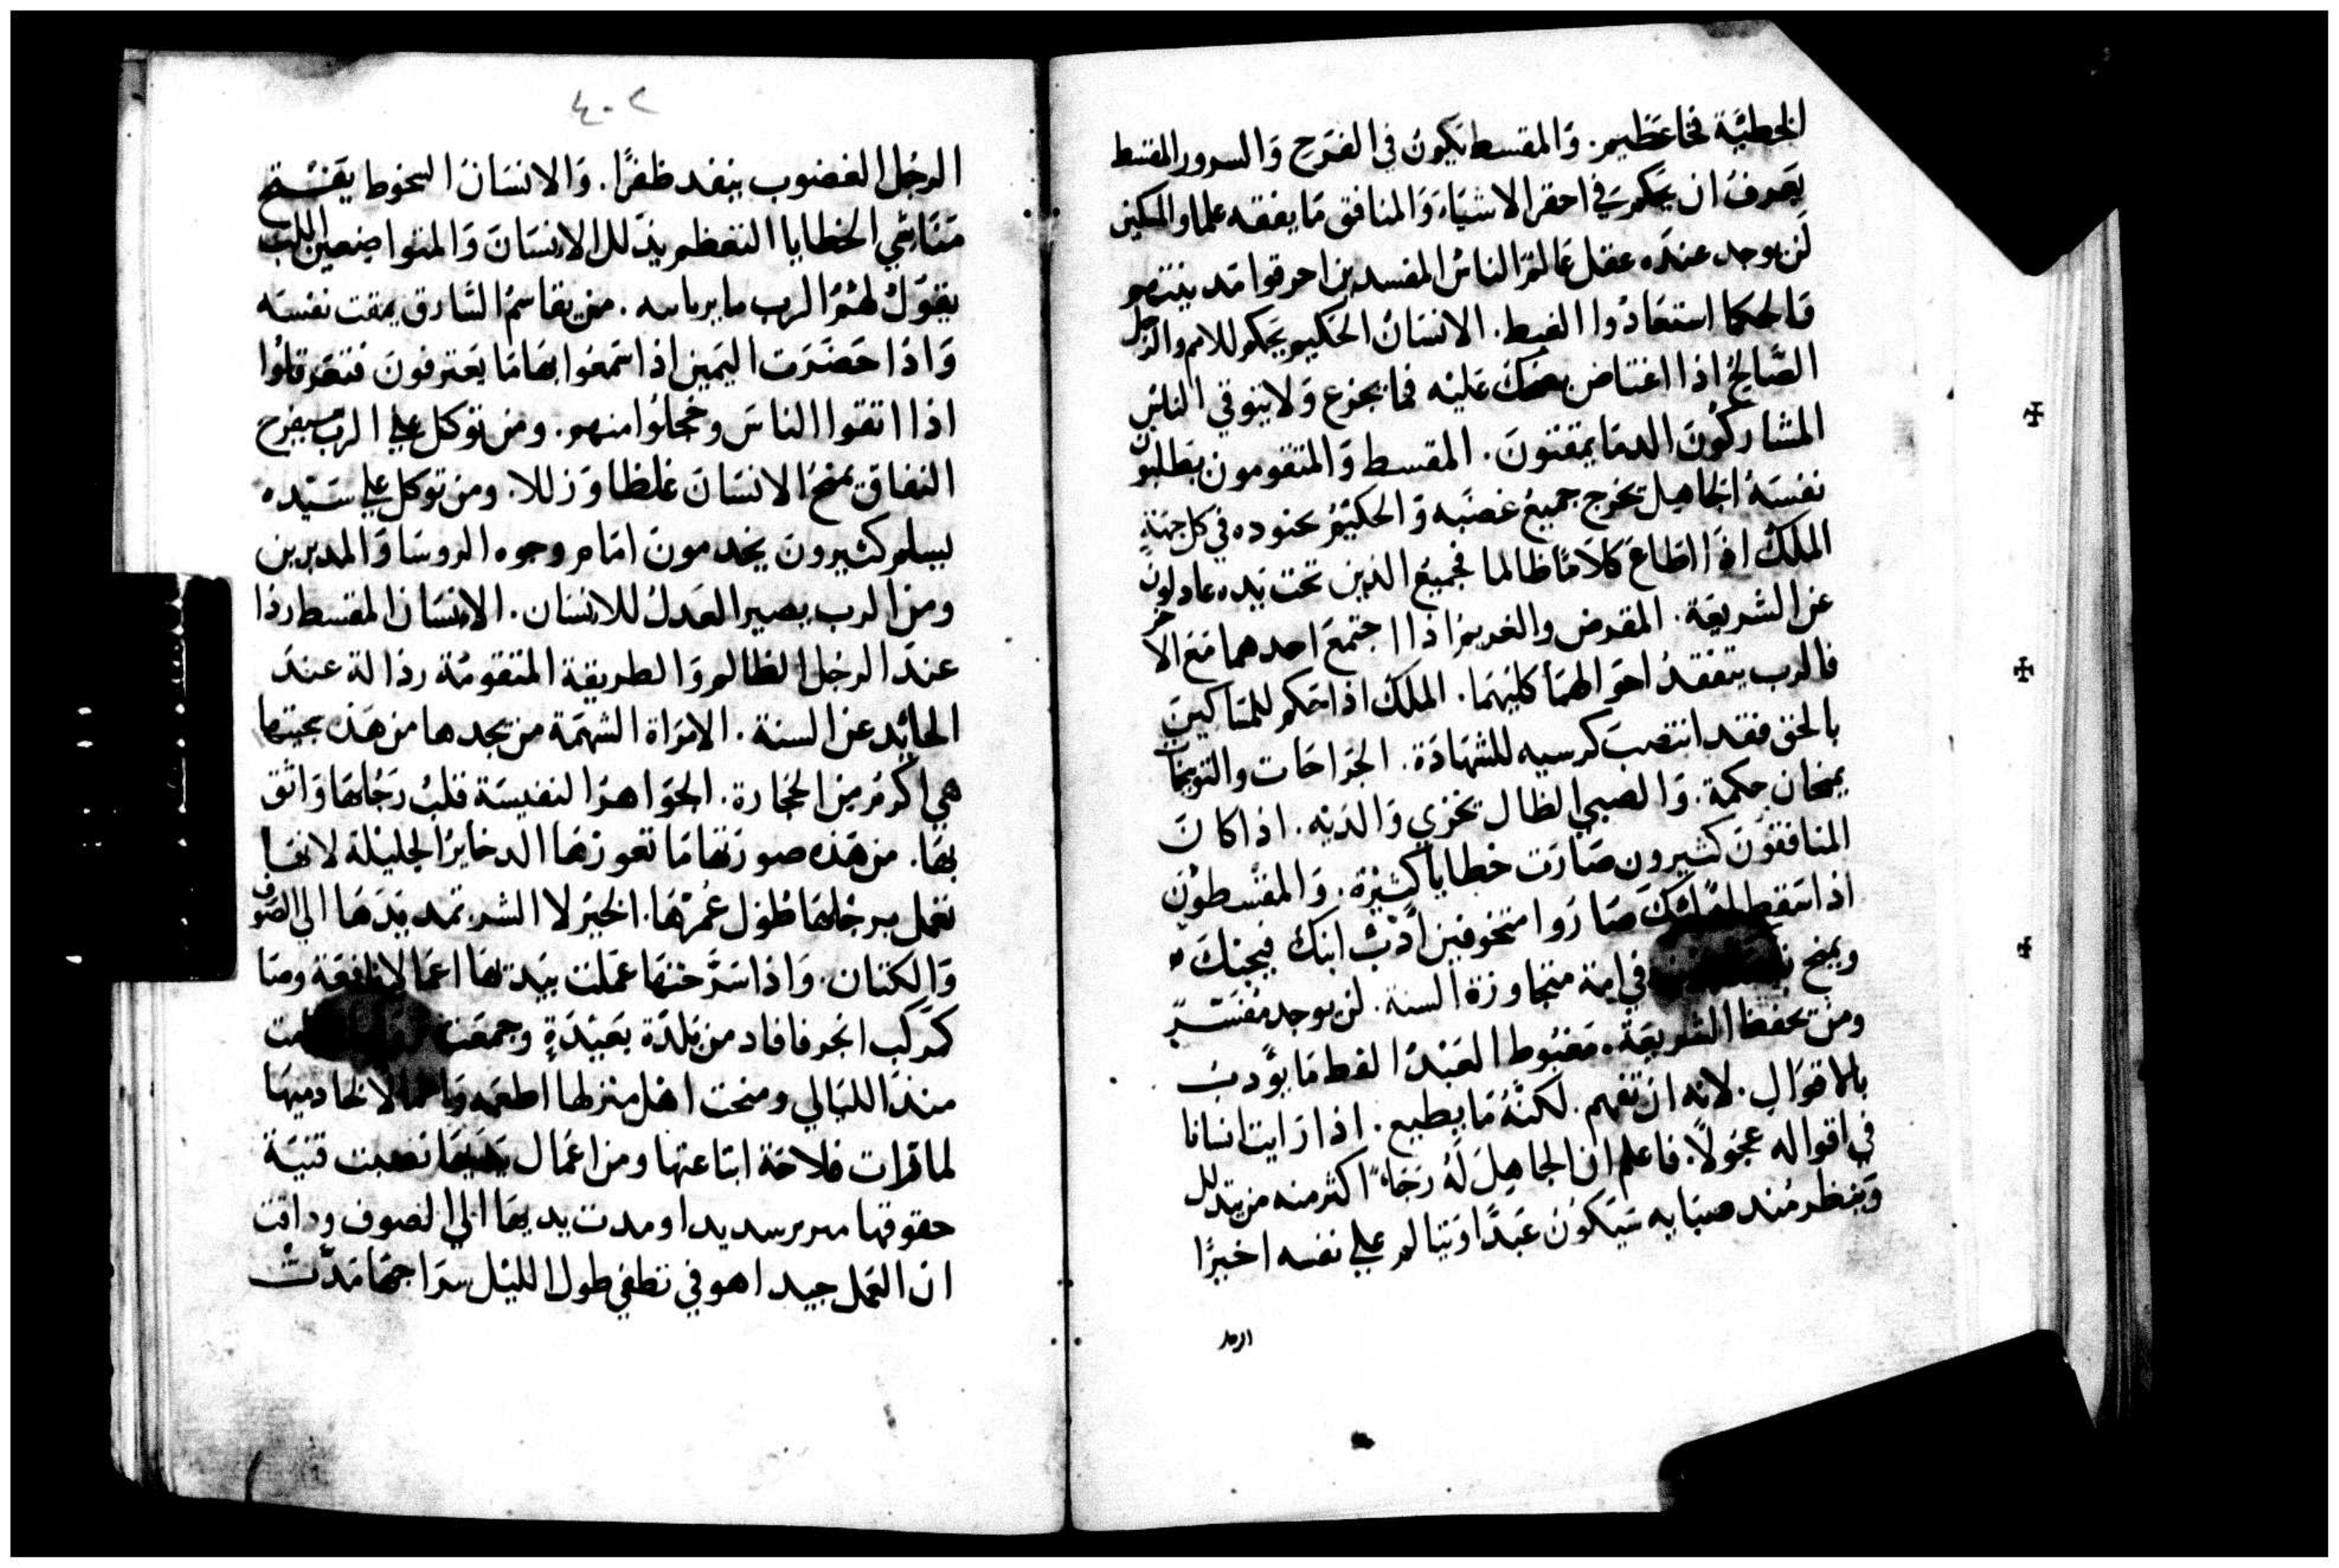 الخطيَّة فخاعَظيم. وَالمقسط يَكونُ في الفَرَحِ وَالسرور المقسط
يَعرفُ ان يَحكم في احقر الاشيَاءَ وَالمنافق مَا يفقه علما والمسكين
لَن يوجد عندَه عقل عَالمٌ الناسُ المفسدين احرقوا مَدينتهم
فَالحكما استعَادُوا الغيط. الانسَانُ الحَكيم يَحكم للامم والرجل
الصَّالحُ اذا اغتاض يضحَكُ عَليْه فما يجزع وَلا يتوقي الناسُ
المشاركُونَ الدمَا يمقتونَ. المقسط وَالمتقومون يَطلبون
نفسَهُ الجَاهِل يخرج جميعُ غضبَه وَالحكيْمُ يحنوده في كل جهَةٍ
الملكُ اذا اطَاعَ كلامًا ظالما فجميعُ الذين تحت يَده عادلون
عن الشريعَة. المقرض والغريم اذا اجتمعَ احدهما مَع الاخر
فالرب يتفقدُ احوَالهمَا كليْهمَا. الملكُ اذا حَكم للمسَاكين
بالحق فقد انتصَبَ كرسيه للشهَادَة. الجرَاحَات والتوبيخات
يمنحان حكمَة. وَالصبي الظال يخزي وَالدَيْه. اذا كانَ
المنافقونَ كثيرون صَارَت خطايا كثيْرَة. وَالمقسطونَ
اذا سَقط اولائِكَ صَاروا متخوفين اَدِّبْ ابنكَ فيجنكَ
ويمنح في امة متجاوزة السنة. لن يوجد مفسّرٌ
ومن يحفظ الشريعَة. مَغبُوط العَبْدُ الفط مَا يؤَدبُ
بالاقوَال. لانه ان تفهم. لكنَّهُ مَا يطيع. اذا رَايت انسانا
في اقواله عجُولاً. فاعلم ان الجَاهِلَ لهُ رَجَاءً اكثر منه من يتدلل
وَينظر مُند صبَايه سَيَكونُ عَبدًا وَيتالم علي نفسه اخيرًا
الرجل
٤٠٢
الرجُل الغضوب ينفد ظفرًا. وَالانسَانُ السخوط يَفتح
مَنَاشي الخطايا التعَظم يذَلل الانسَانَ وَالمتواضعين اللب
يقوُلُ لهُمُ الرب ما برياسه. من يقاسمُ السَّارق يمقت نفسَه
وَاذا حَضَرَت اليَمين اذا سَمعُوا بهَا مَا يَعترفونَ فتعَرقلوا
اذا اتقوا الناسَ وخجلوا منهم. ومن توَكل علي الرب سيفرح
النفاق يمنحُ الانسَانَ غلظا وَزللا. ومن توكل علي سَيّده
ليسلم كثيرونَ يخدمونَ امَام وجوه الروسَا وَالمدبرين
ومن الرب يصير العَدلُ للانسَان. الانسَان المقسط رذا
عندَ الرجل الظالم وَالطريقة المتقومَة رذالة عندَ
الحائِد عن السنة. الامرَاة الشهمَة من يجدها من هَذه بجيتها
هي اكرمُ من الحجارة. الجوَاهرُ النفيسَة قلبُ رَجُلها وَاثق
بهَا. من هَذه صورَتها مَا تعوزهَا الدخايرُ الجليْلة لانها
تعَمل برجلها طوْل عُمرَهَا الخيرُ لا الشر تمد يَدَهَا الي الصوف
وَالكتان. وَاذا سَرَّحتهَا عَملت بيَديهَا اعمَالاً نافعَة وصَا
كمَركب اتجر فافاد من بَلدَة بَعيْدَةٍ وجمعَت
مندَ الليَالي ومنحت اهْل منزلها اطعمَه وَاعمَالا لخادميهَا
لما قرات فلاحَة ابتاعتها ومن اعمَال يَديها نصبت قنيَة
حقوقها سررر سديدا ومدت يديهَا الي الصوف وداقت
ان العَمل جيد اهو في تطفي طول الليْل سرَاجهَا مَدَّتْ